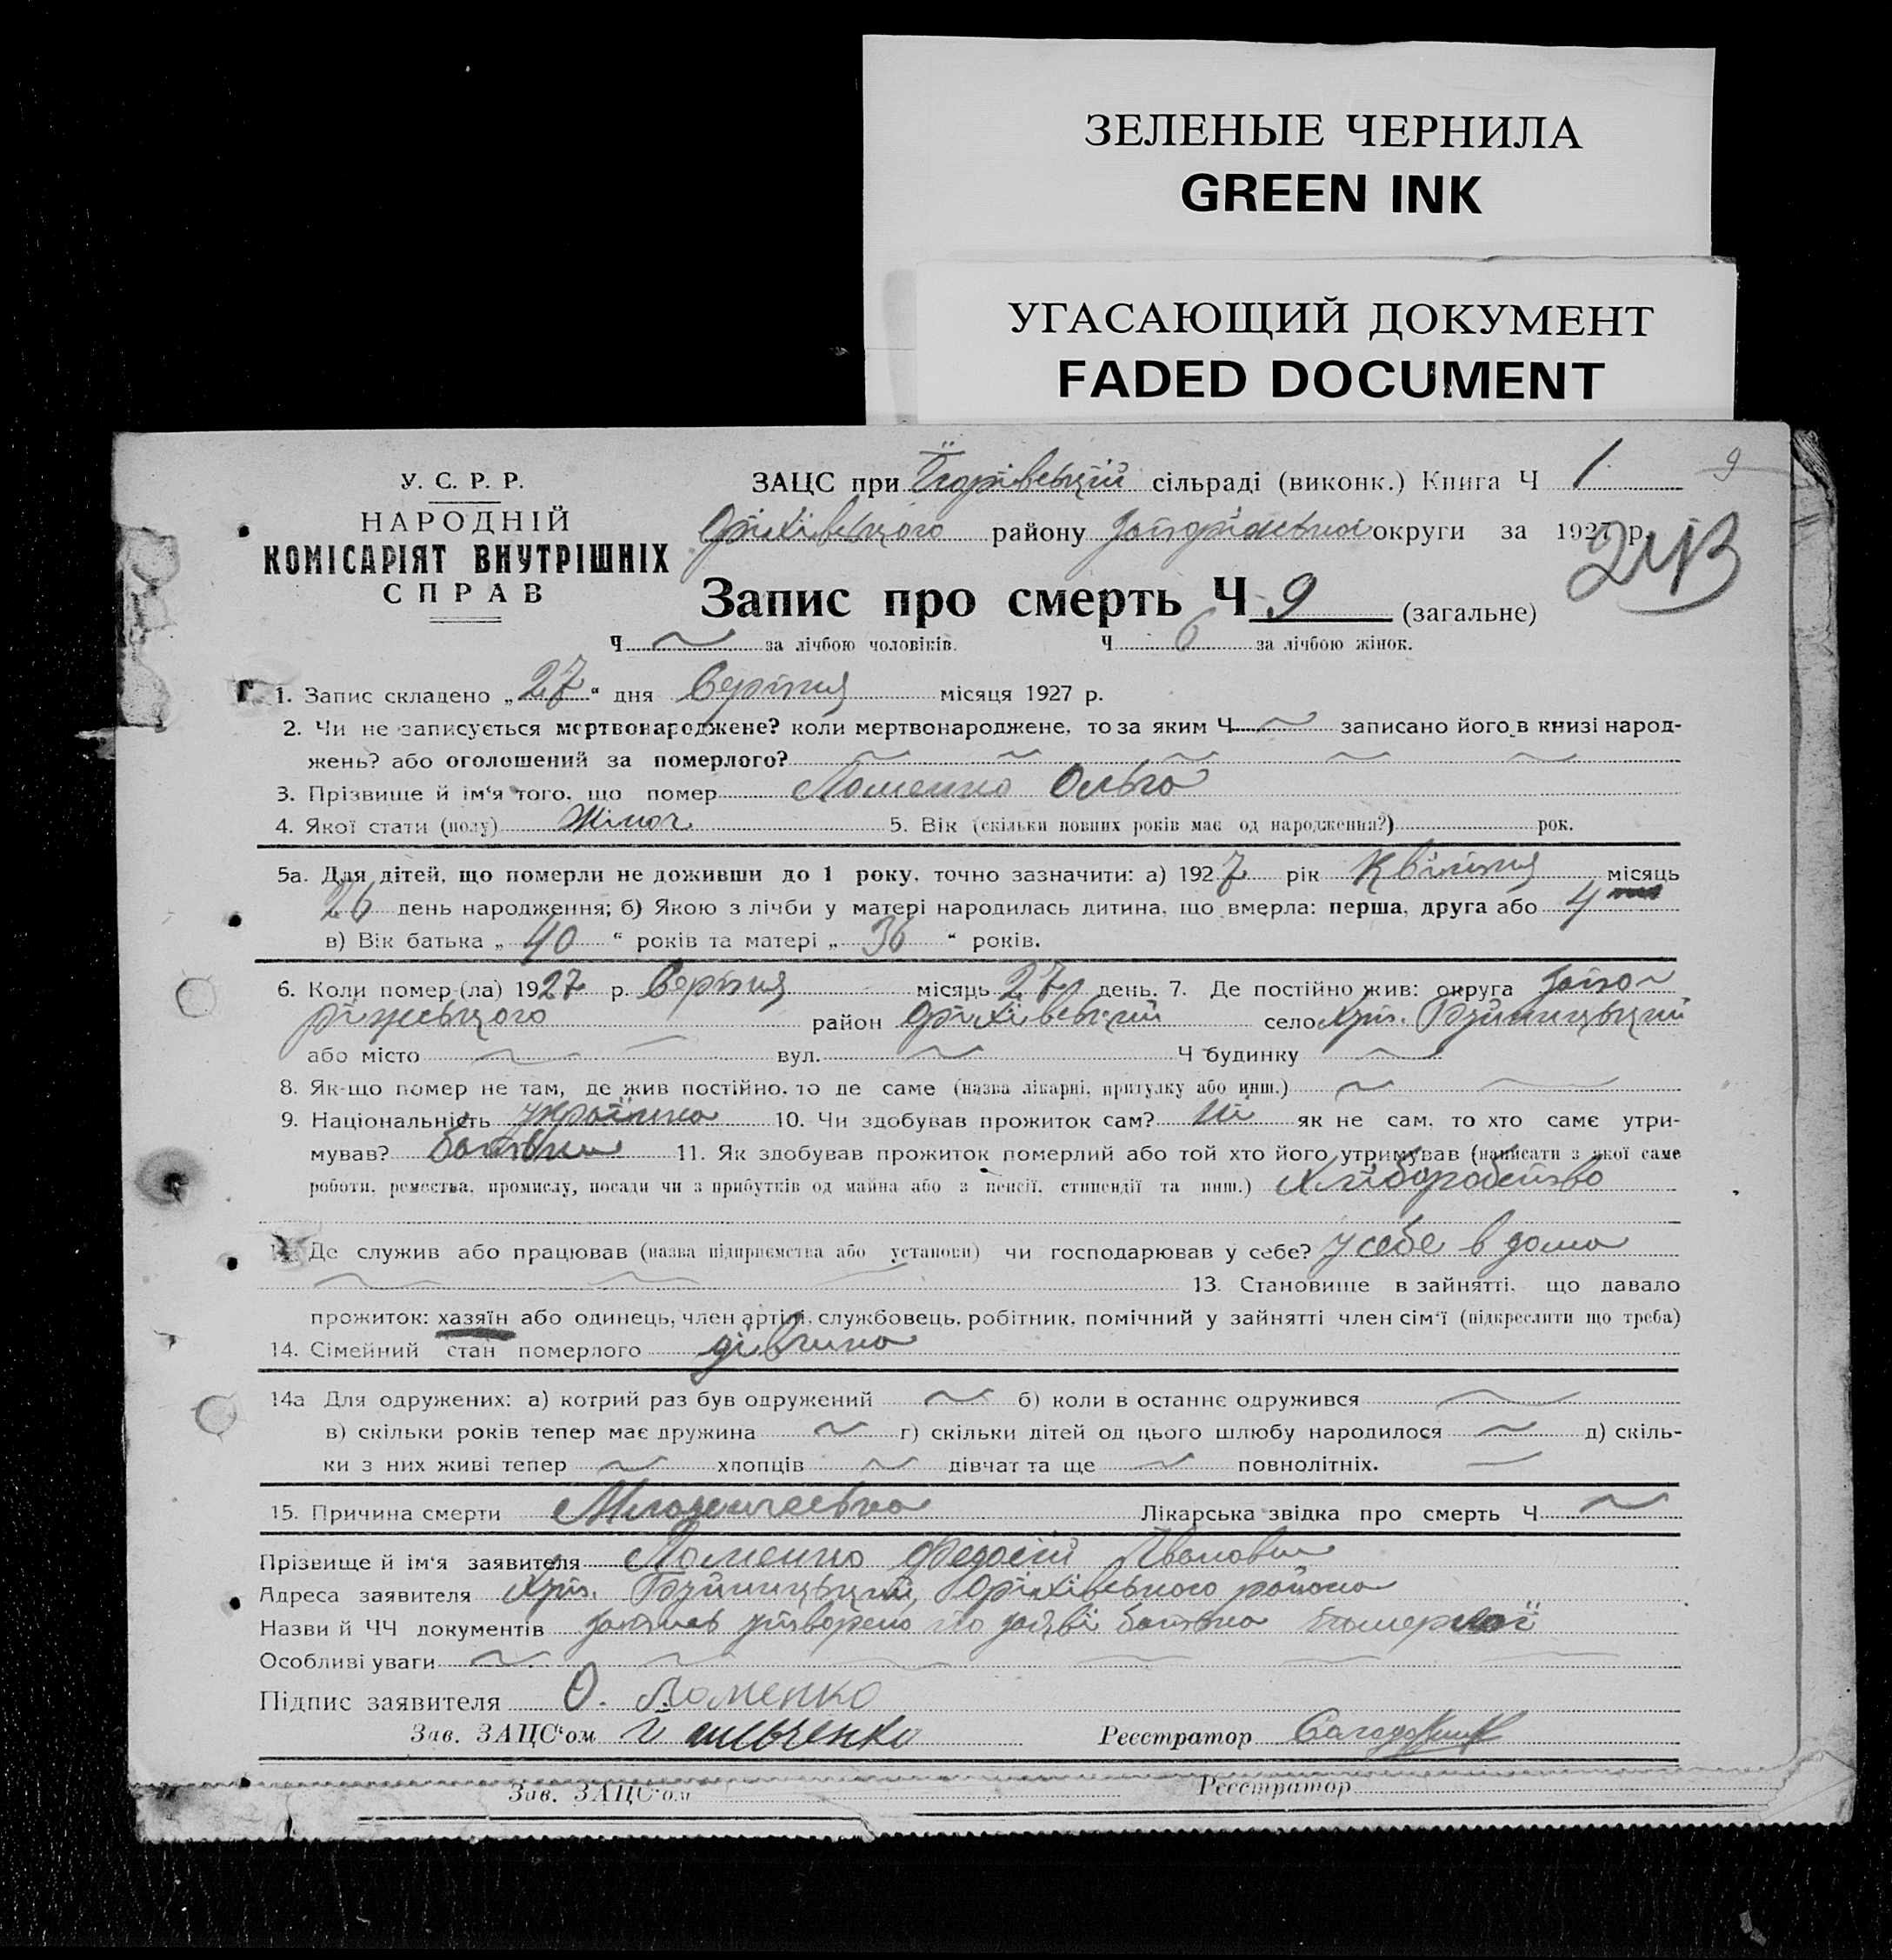 ЗЕЛЕНЫЕ ЧЕРНИЛА
GREEN INK
УГАСАЮЩИЙ ДОКУМЕНТ
FADED DOCUMENT
У. С. Р. Р.
НАРОДНІЙ
КОМІСАРІЯТ ВНУТРІШНІХ
СПРАВ
ЗАЦС при сільраді (виконк.) Книга Ч 1 9
Оріхівського району Запоріжської округи за 1927 р.
Запис про смерть Ч 9 (загальне)
Ч за лічбою чоловіків. Ч 6 за лічбою жінок.
1. Запис складено „27“ дня Серпня місяця 1927 р.
2. Чи не записується мертвонароджене? коли мертвонароджене, то за яким Ч записано його в книзі народ-
жень? або оголошений за померлого?
3. Прізвище й ім'я того, що помер Ломенко Ольга
4. Якої стати (полу) Жіноч 5. Вік (скільки повних років має од народження?) рок.
5а. Для дітей, що померли не доживши до 1 року, точно зазначити: а) 1927 рік Квітня місяць
26 день народження; б) Якою з лічби у матері народилась дитина, що вмерла: перша, друга або 4
в) Вік батька „40“ років та матері „36“ років.
6. Коли помер-(ла) 1927 р. Серпня місяць 27 день. 7. Де постійно жив: округа Запо-
ріжського район Оріхівський село Хут.
або місто вул. Ч будинку
8. Як-що помер не там, де жив постійно, то де саме (назва лікарні, притулку або инш.)
9. Національність українка 10. Чи здобував прожиток сам? ні як не сам, то хто саме утри-
мував? батьки 11. Як здобував прожиток померлий або той хто його утримував (написати з якої саме
роботи, ремества, промислу, посади чи з прибутків од майна або з пенсії, стипендії та инш.) Хліборобство
Де служив або працював (назва підприємства або установи) чи господарював у себе? у себе в дома
13. Становище в зайнятті, що давало
прожиток: хазяїн або одинець, член артілі, службовець, робітник, помічний у зайнятті член сім'ї (підкреслити що треба)
14. Сімейний стан померлого дівчина
14а Для одружених: а) котрий раз був одружений б) коли в останнє одружився
в) скільки років тепер має дружина г) скільки дітей од цього шлюбу народилося д) скіль-
ки з них живі тепер хлопців дівчат та ще повнолітніх.
15. Причина смерти Лікарська звідка про смерть Ч
Прізвище й ім'я заявителя Ломенко Федосій Іванович
Адреса заявителя Хут. Оріхівського района
Назви й ЧЧ документів запись утворено по заяві батька померлої
Особливі уваги
Підпис заявителя О. Ломенко
Зав. ЗАЦС'ом Реєстратор
Зав. ЗАЦС'ом Реєстратор